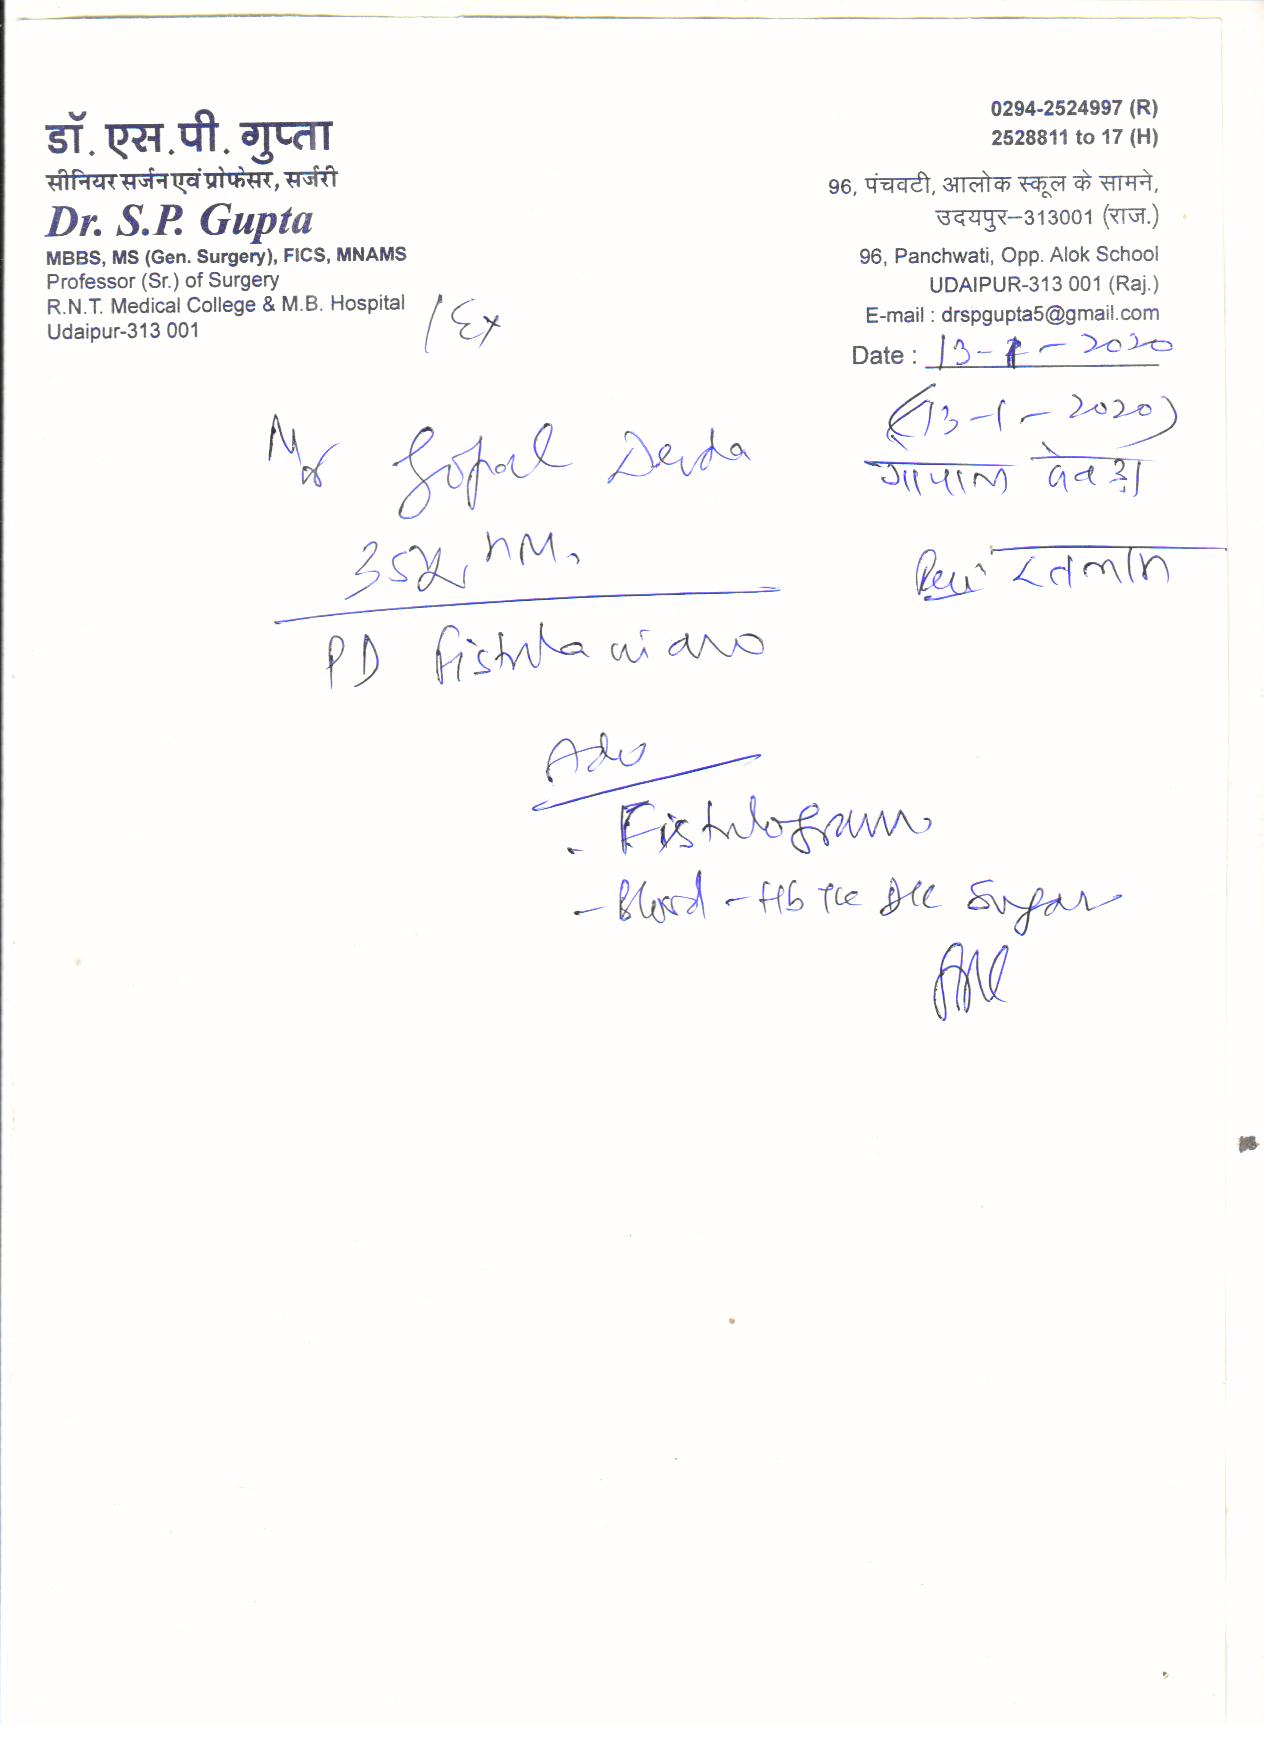 डॉ. एस.पी. गुप्ता
सीनियर सर्जन एवं प्रोफेसर, सर्जरी
Dr. S.P. Gupta
MBBS, MS (Gen. Surgery), FICS, MNAMS
Professor (Sr.) of Surgery
R.N.T. Medical College & M.B. Hospital
Udaipur-313 001
/Ex
0294-2524997 (R)
2528811 to 17 (H)
96, पंचवटी, आलोक स्कूल के सामने,
उदयपुर–313001 (राज.)
96, Panchwati, Opp. Alok School
UDAIPUR-313 001 (Raj.)
E-mail : drspgupta5@gmail.com
Date : 13-1-2020
(13-1-2020)
Mr Gopal
गोपाल
35y,
PD Fistula ano
Adv
- Fistulogram
- Blood - Hb TLC DLC Sugar